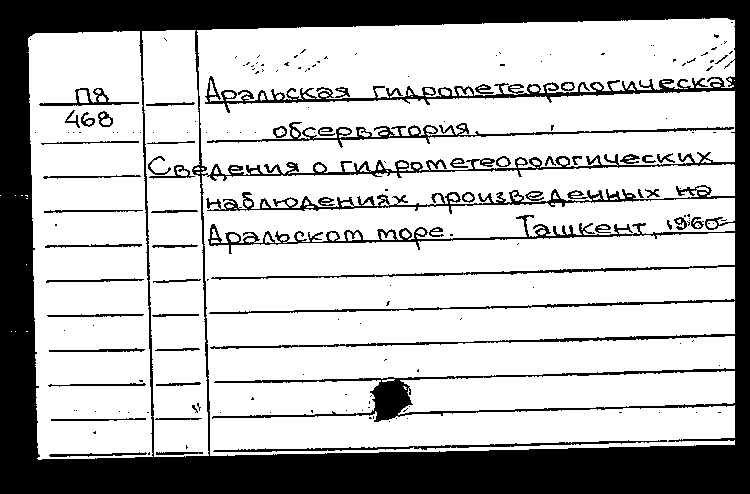 П8
468
Аральская гидрометеорологическая
обсерватория.
Сведения о гидрометеорологических
наблюдениях, произведенных на
Аральском море. Ташкент, 1960-